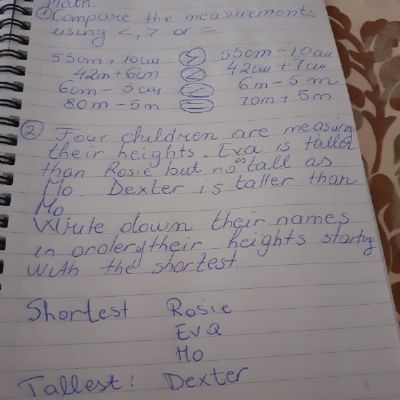 Math.
① Compare the measurements
using <, > or =
55cm + 10cm > 55cm - 10cm
42m + 6cm < 42cm + 7cm
6cm - 5cm < 6m - 5m
80m - 5m = 70m + 5m
② Four children are measuring
their heights. Eva is taller
than Rosie but not as tall as
Mo Dexter is taller than
Mo
Wiute down their names
in order of their heights starting
with the shortest.
Shortest Rosie
Eva
Mo
Tallest: Dexter